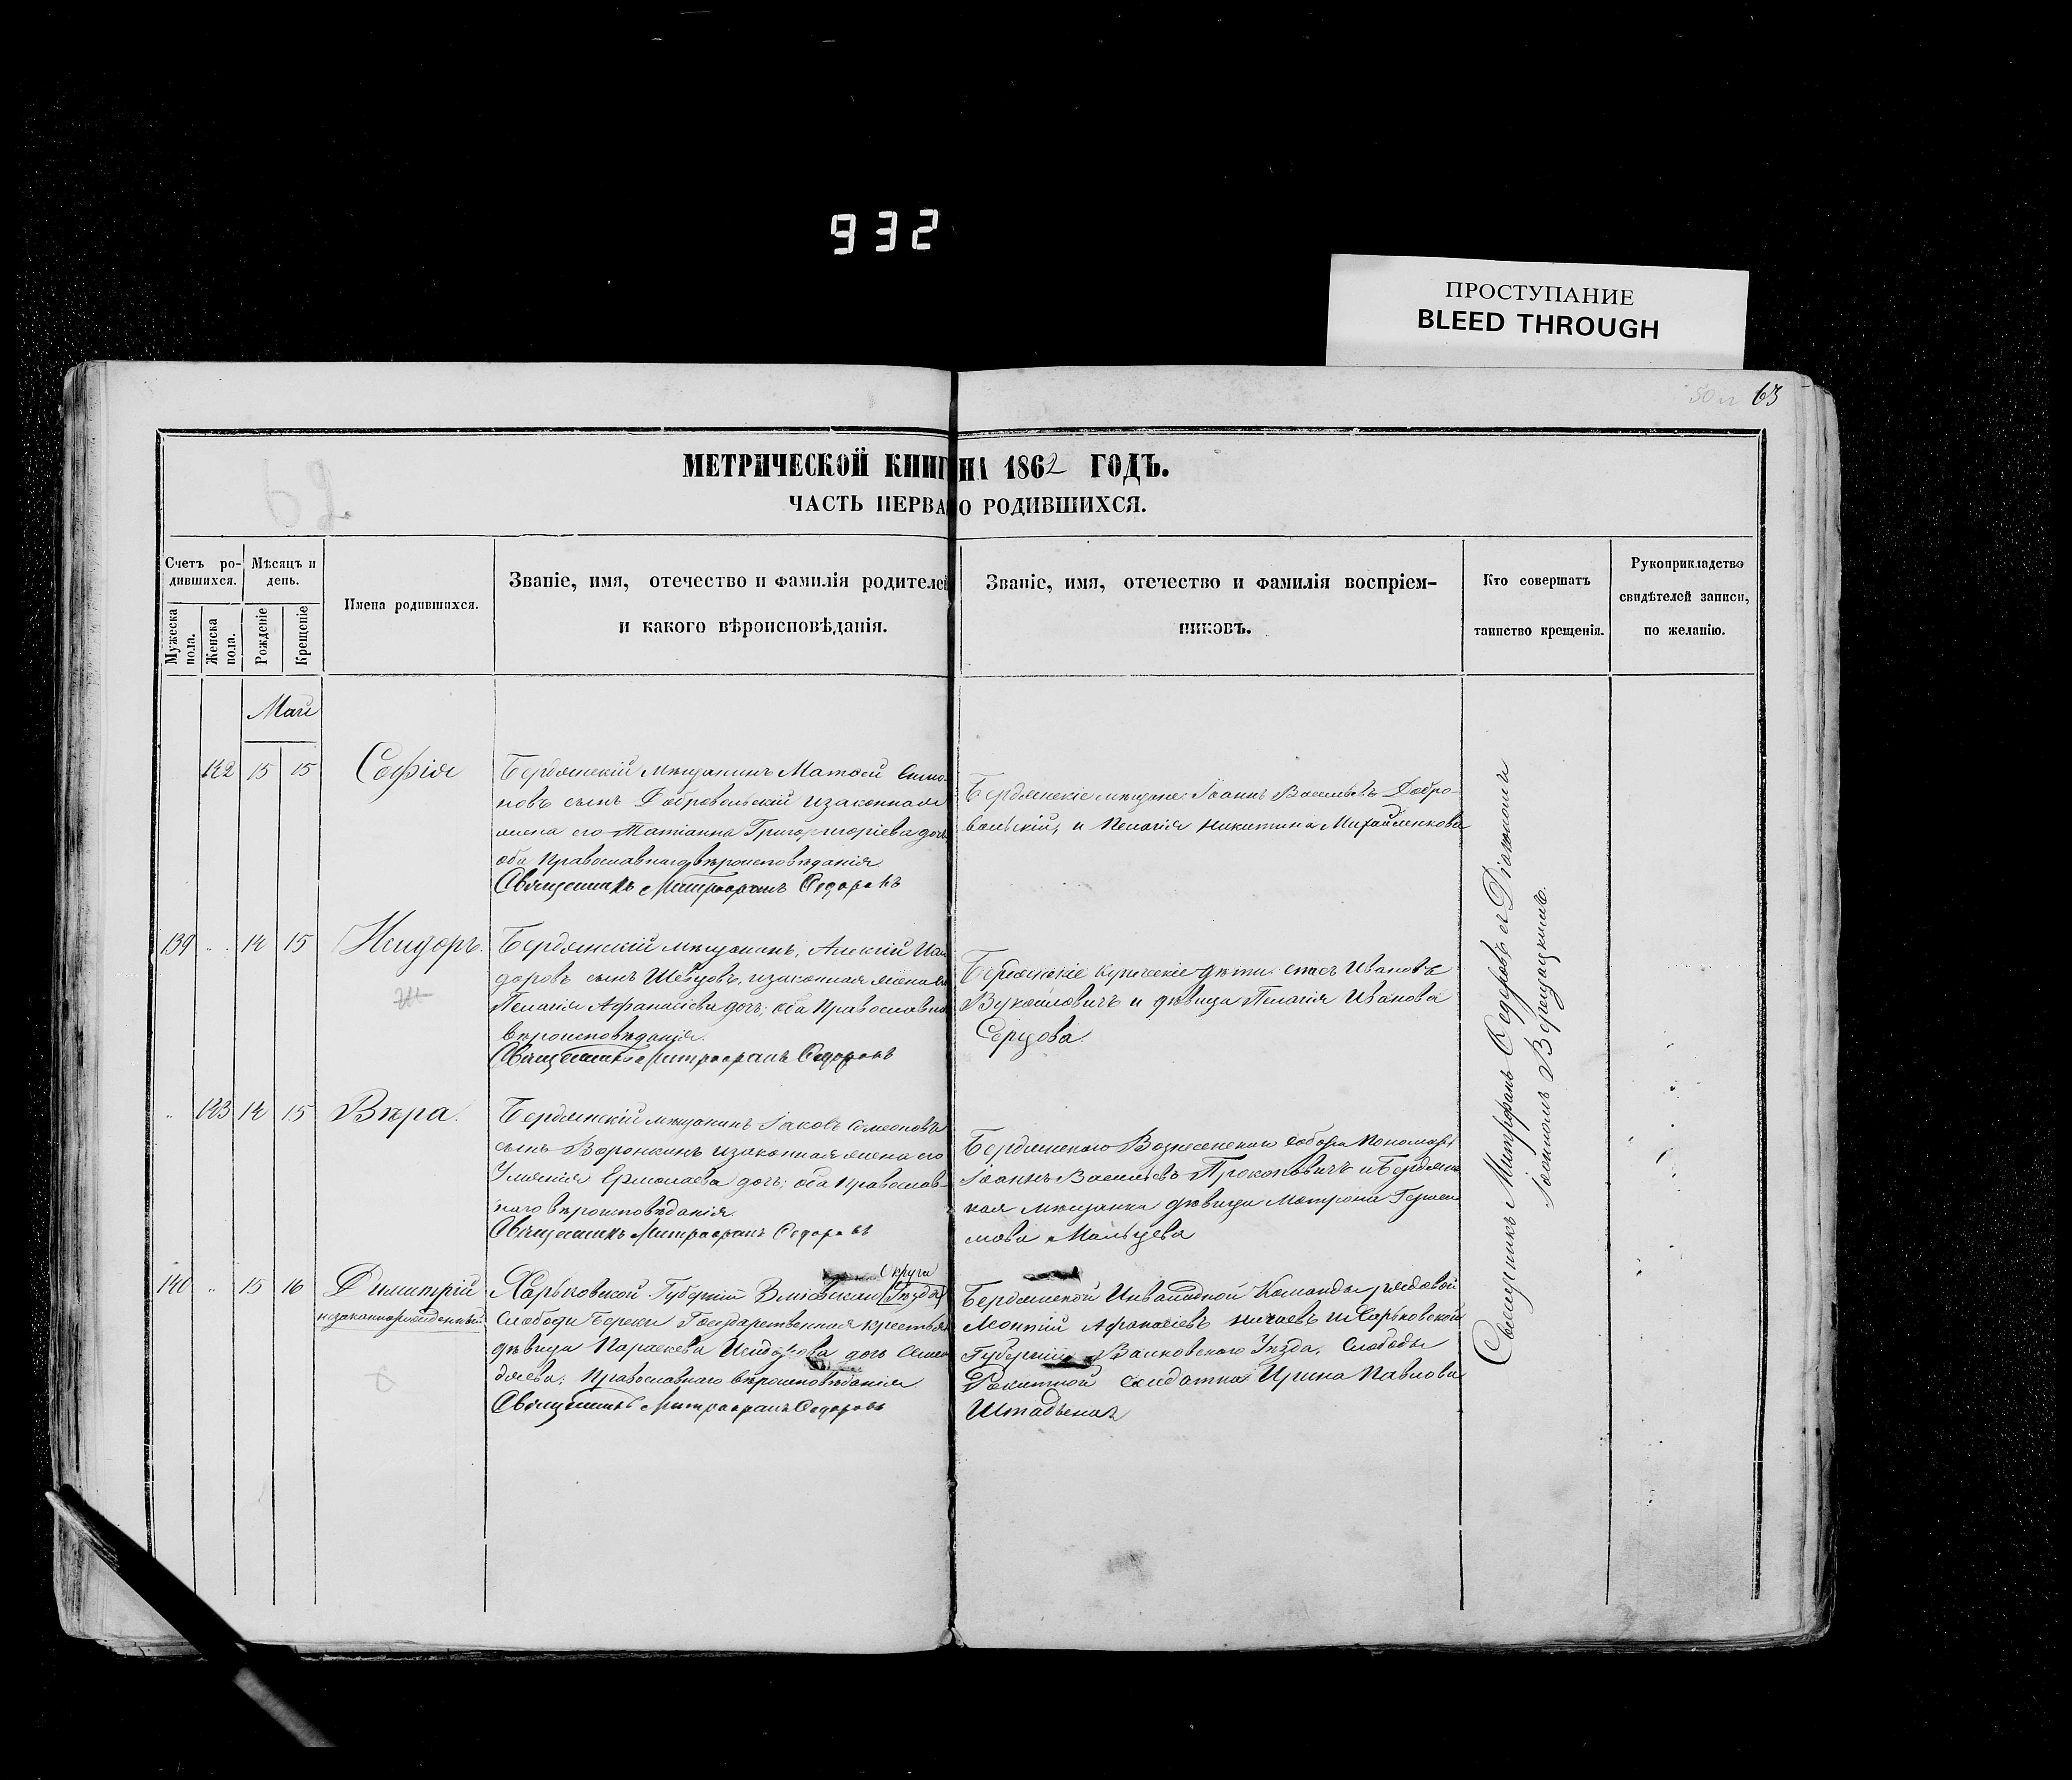 932
ПРОСТУПАНИЕ
BLEED THROUGH
63
62
МЕТРИЧЕСКОЙ КНИГ НА 1862 ГОДЪ.
ЧАСТЬ ПЕРВА О РОДИВШИХСЯ.
Счетъ ро-
дившихся.
Мужеска пола.
Женска пола.
Мѣсяцъ и
день.
Рожденіе
Крещеніе
Имена родившихся.
Званіе, имя, отечество и фамилія родителей
и какого вѣроисповѣданія.
Званіе, имя, отечество и фамилія воспріем-
никовъ.
Кто совершатъ
таинство крещенія.
Рукоприкладство
свидѣтелей записи,
по желанію.
Май
142 15 15 Софія
Бердянскій мѣщанинъ Матѳей Симо-
новъ сынъ Добровольскій и законная
жена его Татіанна Григоріева дочь
оба Православнаго вѣроисповѣданія
Священникъ Митрофанъ Ѳедоровъ
Бердянскіе мѣщане: Іоаннъ Васильевъ Добро-
вольскій, и Пелагія Никитина Михайленкова
139 14 15 Исидоръ.
Бердянскій мѣщанинъ, Алексій Иси
доровъ сынъ Шевцовъ, и законная жена
Пелагія Афанасіева дочь; оба Православна
вѣроисповѣданія.
Священникъ Митрофанъ Ѳедоровъ
Бердянскіе купеческіе дѣти: Ивановъ
Вукеиловичъ и дѣвица Пелагія Иванова
Серцова.
143 14 15 Вѣра.
Бердянскій мѣщанинъ Іаковъ Симеоновъ
сынъ Воронкинъ и законная жена его
Ермолаева дочь; оба Православ-
наго вѣроисповѣданія.
Священникъ Митрофанъ Ѳедоровъ
Бердянскаго Вознесенскаго собора Пономарь
Іоаннъ Васильевъ Прокоповичъ и Бердянс
кая мѣщанка дѣвица Матрона
мова Мальцева
140 15 16 Димитрій
незаконнорожденный
округа
Харьковской Губерніи Зміевскаго (Уѣзда)
Слободы Береки Государственная крестьян
дѣвица Параскева Исидорова дочь
дяева; Православнаго вѣроисповѣданія
Священникъ Митрофанъ Ѳедоровъ
Бердянской Инвалидной Команды рядовой
Леонтій Афанасіевъ и Харьковской
Губерніи Валковскаго Уѣзда, Слободы
Ракитной солдатка Ирина Павлова
Священникъ Митрофанъ Ѳедоровъ съ Діакономъ
Іоанномъ